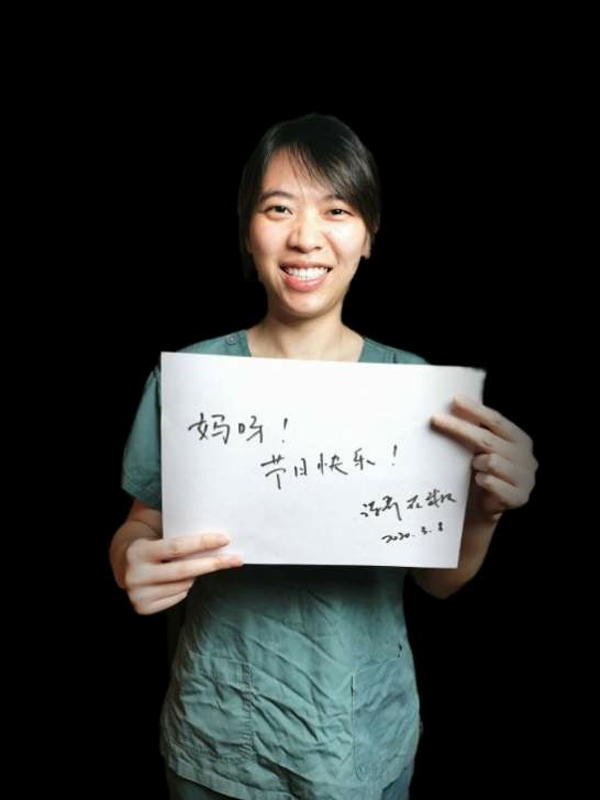 妈呀！
节日快乐！
在武汉
2020.3.8